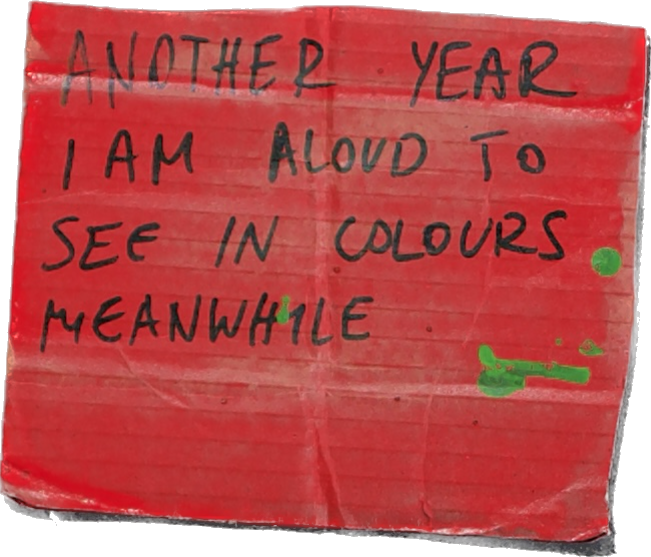 ANOTHER YEAR
I AM ALOUD TO
SEE IN COLOURS
MEANWHILE